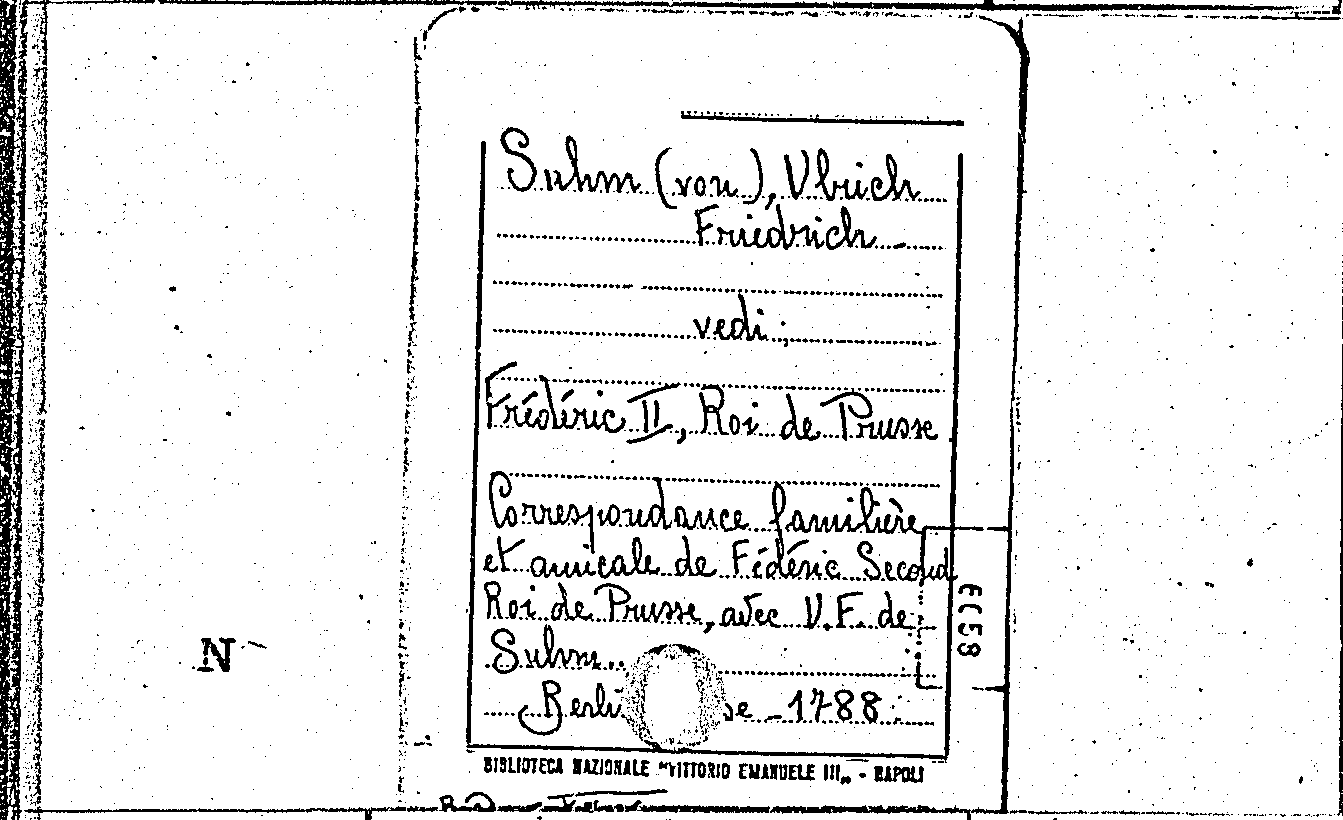 Suhm (von), Vlrich
Friedrich -
vedi:
Frédéric II, Roi de Prusse
Correspondance familière
et amicale de Fédéric Second
Roi de Prusse, avec V.F. de
Suhm..
1788
BIBLIOTECA NAZIONALE "VITTORIO EMANUELE III„ - NAPOLI
N